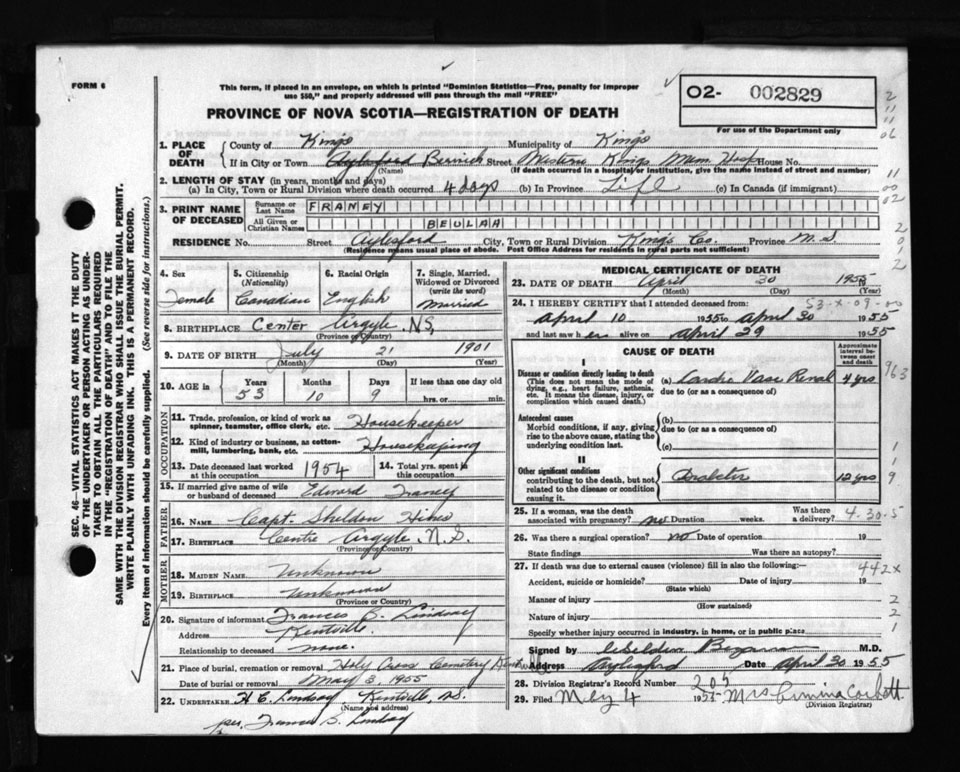 FORM 6
This form, if placed in an envelope, on which is printed "Dominion Statistics—Free, penalty for improper
use $50," and properly addressed will pass through the mail "FREE"
PROVINCE OF NOVA SCOTIA—REGISTRATION OF DEATH
O2- 002829
For use of the Department only
2
11
11
06
11
00
02
2
0
1
2
SEC. 46—VITAL STATISTICS ACT MAKES IT THE DUTY
OF THE UNDERTAKER OR PERSON ACTING AS UNDER-
TAKER TO OBTAIN ALL THE PARTICULARS REQUIRED
IN THE "REGISTRATION OF DEATH" AND TO FILE THE
SAME WITH THE DIVISION REGISTRAR WHO SHALL ISSUE THE BURIAL PERMIT.
WRITE PLAINLY WITH UNFADING INK. THIS IS A PERMANENT RECORD.
Every item of information should be carefully supplied. (See reverse side for instructions.)
1. PLACE OF DEATH
County of Kings Municipality of Kings
If in City or Town Aylesford Berwick Street Western Kings Mem. Hosp House No.
(Name) (If death occurred in a hospital or institution, give the name instead of street and number)
2. LENGTH OF STAY (in years, months and days)
(a) In City, Town or Rural Division where death occurred 4 days (b) In Province Life (c) In Canada (if immigrant)
3. PRINT NAME OF DECEASED
Surname or Last Name FRANEY
All Given or Christian Names BEULAH
RESIDENCE No. Street Aylesford City, Town or Rural Division Kings Co. Province N.S.
(Residence means usual place of abode. Post Office Address for residents in rural parts not sufficient)
4. Sex Female
5. Citizenship (Nationality) Canadian
6. Racial Origin English
7. Single, Married, Widowed or Divorced (write the word) Married
8. BIRTHPLACE Center Argyle, NS,
(Province or Country)
9. DATE OF BIRTH July 21 1901
(Month) (Day) (Year)
10. AGE IN Years 53 Months 10 Days 9 If less than one day old hrs. or min.
OCCUPATION
11. Trade, profession, or kind of work as spinner, teamster, office clerk, etc. Housekeeper
12. Kind of industry or business, as cotton-mill, lumbering, bank, etc. Housekeeping
13. Date deceased last worked at this occupation 1954 14. Total yrs. spent in this occupation
15. If married give name of wife or husband of deceased Edward Franey
FATHER
16. NAME Capt. Sheldon Hines
17. BIRTHPLACE Centre Argyle, N.S.
(Province or Country)
MOTHER
18. MAIDEN NAME Unknown
19. BIRTHPLACE Unknown
(Province or Country)
20. Signature of informant Frances S. Lindsay
Address Kentville.
Relationship to deceased none.
21. Place of burial, cremation or removal Holy Cross Cemetery
Date of burial or removal May 3, 1955
22. UNDERTAKER H C Lindsay Kentville, N.S.
(Name and address)
per. Frances S. Lindsay
MEDICAL CERTIFICATE OF DEATH
23. DATE OF DEATH April 30 1955
(Month) (Day) (Year)
24. I HEREBY CERTIFY that I attended deceased from: 53-X-09-00
April 10 1955 to April 30 1955
and last saw her alive on April 29 1955
CAUSE OF DEATH
Approximate interval between onset and death
I
Disease or condition directly leading to death
(This does not mean the mode of dying, e.g., heart failure, asthenia, etc. It means the disease, injury, or complication which caused death.)
(a) Cardio Vasc Renal 4 yrs
due to (or as a consequence of)
963
Antecedent causes
Morbid conditions, if any, giving rise to the above cause, stating the underlying condition last.
(b)
due to (or as a consequence of)
(c)
II
Other significant conditions
contributing to the death, but not related to the disease or condition causing it.
Diabetes 12 yrs
1
1
9
25. If a woman, was the death associated with pregnancy? no Duration weeks. Was there a delivery? 4-30-5
26. Was there a surgical operation? no Date of operation 19
State findings Was there an autopsy?
27. If death was due to external causes (violence) fill in also the following:—
442x
Accident, suicide or homicide? Date of injury 19
(State which)
Manner of injury 2
(How sustained)
Nature of injury 2
Specify whether injury occurred in industry, in home, or in public place 1
Signed by M.D.
Address Aylesford Date April 30 1955
28. Division Registrar's Record Number 205
29. Filed May 4 1955 Mrs Ermina Corbett
(Division Registrar)